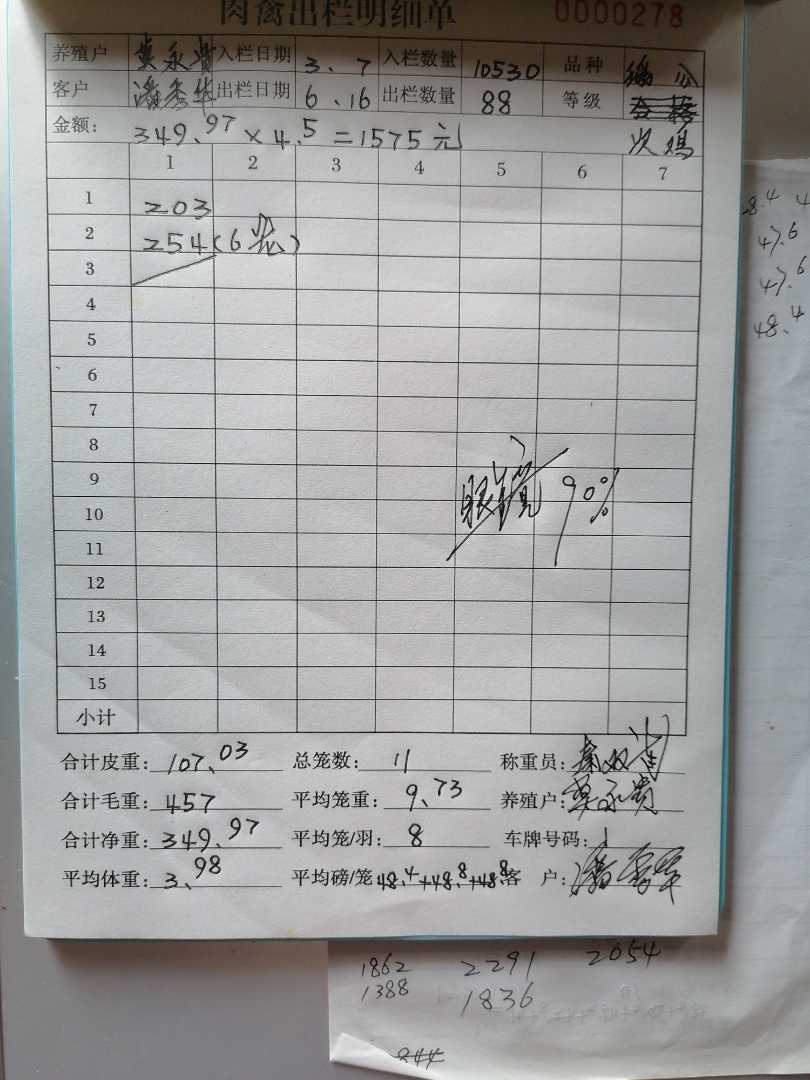 肉禽出栏明细单 0000278
养殖户 永贵 入栏日期 3.7 入栏数量 10530 品种
客户 潘秀华 出栏日期 6.16 出栏数量 88 等级 合格
金额: 349.97×4.5=1575元 次鸡
1 2 3 4 5 6 7
1 203
2 254(6笼)
3
4
5
6
7
8
9 眼镜 90%
10
11
12
13
14
15
小计
合计皮重: 107.03 总笼数: 11 称重员:
合计毛重: 457 平均笼重: 9.73 养殖户: 永贵
合计净重: 349.97 平均笼/羽: 8 车牌号码:
平均体重: 3.98 平均磅/笼 48.4+48.8+48.8 客 户: 潘秀华
28.4 4
47.6
47.6
48.4
1862 2291 2054
1388 1836
844